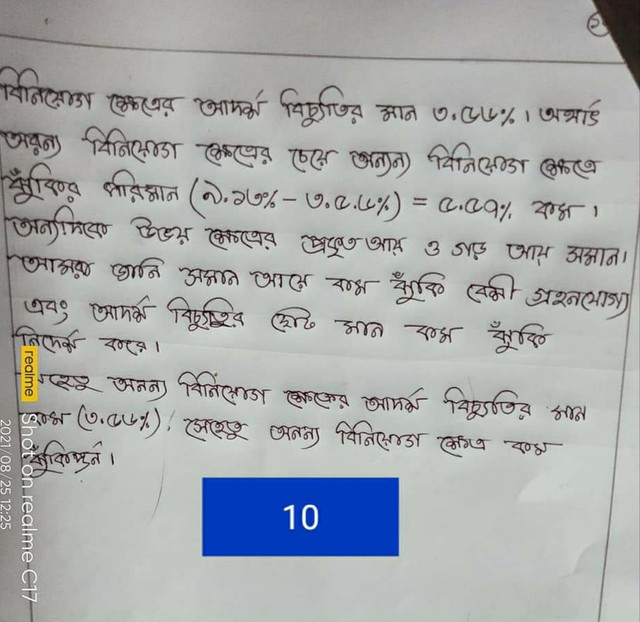 বিনিয়োগ ক্ষেত্রের আদর্শ বিচ্যুতির মান ৩.৫৬%। অর্থাৎ
অরন্য বিনিয়োগ ক্ষেত্রের চেয়ে অনন্য বিনিয়োগ ক্ষেত্রে
ঝুঁকির পরিমান (৯.১৩% - ৩.৫৬%) = ৫.৫৭% কম।
অন্যদিকে উভয় ক্ষেত্রের প্রকৃত আয় ও গড় আয় সমান।
আমরা জানি সমান আয়ে কম ঝুঁকি বেশী গ্রহনযোগ্য
এবং আদর্শ বিচ্যুতির ছোট মান কম ঝুঁকি
নির্দেশ করে।
যেহেতু অনন্য বিনিয়োগ ক্ষেত্রের আদর্শ বিচ্যুতির মান
কম (৩.৫৬%), সেহেতু অনন্য বিনিয়োগ ক্ষেত্র কম
ঝুকিপূর্ন।
10
realme
Shot on realme C17
2021/08/25 12:25